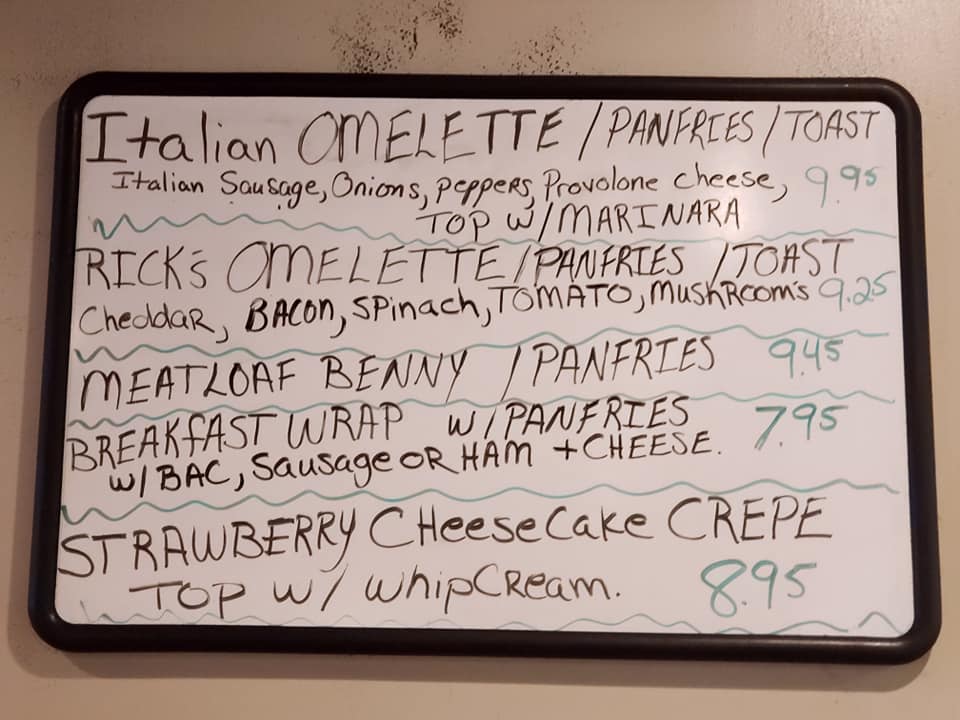 Italian OMELETTE / PANFRIES / TOAST
Italian Sausage, Onions, peppers, Provolone cheese, 9.95
TOP W/ MARINARA
RICK's OMELETTE / PANFRIES / TOAST
Cheddar, BACON, Spinach, TOMATO, MushRoom's 9.25
MEATLOAF BENNY / PANFRIES 9.45
BREAKfAST WRAP W/ PANFRIES 7.95
W/ BAC, Sausage OR HAM + CHEESE.
STRAWBERRY CHeeseCake CREPE
TOP W/ WhipCream. 8.95